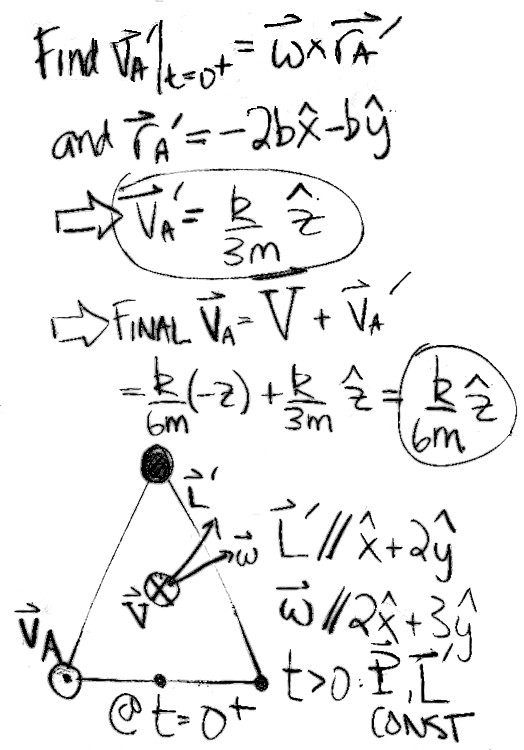 Find v⃗A'|t=0+ = ω⃗ × r⃗A'
and r⃗A' = -2bx̂ - bŷ
⇒ v⃗A' = k/3m ẑ
⇒ FINAL v⃗A = V⃗ + v⃗A'
= k/6m (-z) + k/3m ẑ = k/6m ẑ
L⃗'
ω⃗
V⃗
v⃗A
@ t = 0+
L⃗' // x̂ + 2ŷ
ω⃗ // 2x̂ + 3ŷ
t > 0 : P⃗, L⃗'
CONST